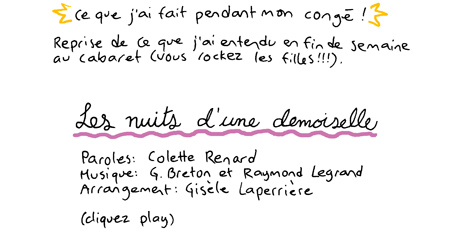 ce que j'ai fait pendant mon congé !
Reprise de ce que j'ai entendu en fin de semaine
au cabaret (vous rockez les filles!!!).
Les nuits d'une demoiselle
Paroles: Colette Renard
Musique: G. Breton et Raymond Legrand
Arrangement: Gisèle Laperrière
(cliquez play)